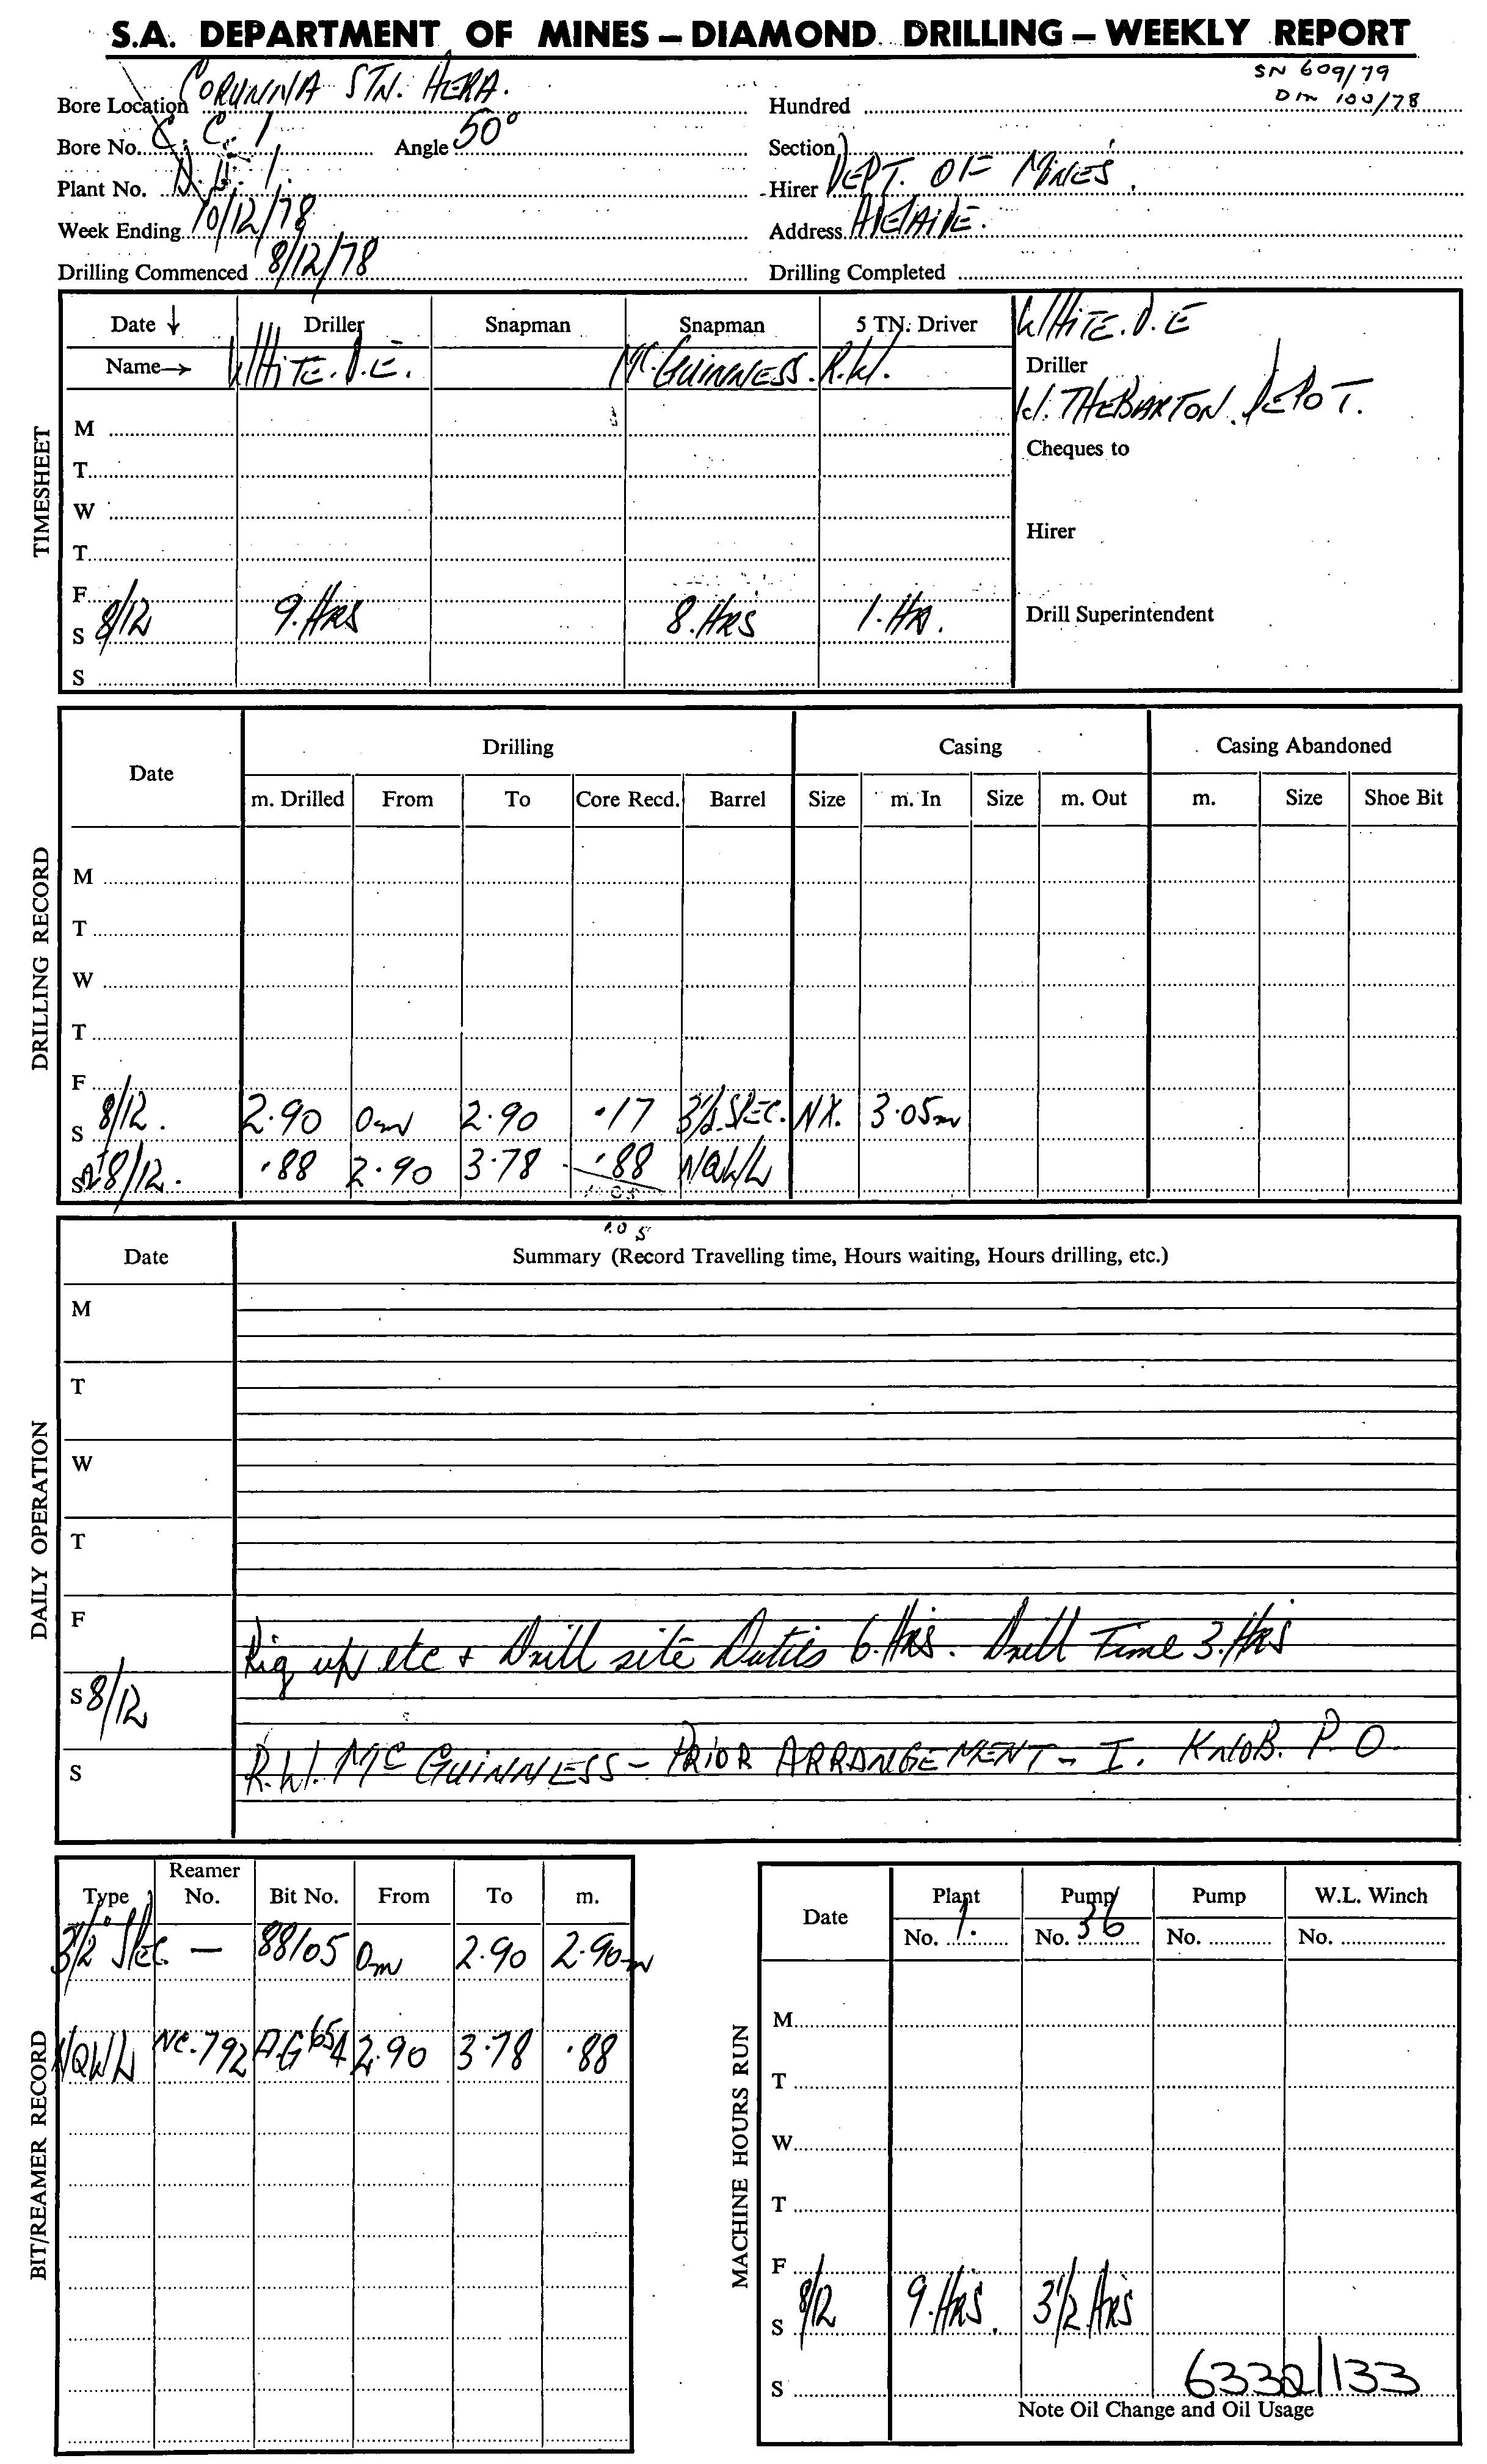 S.A. DEPARTMENT OF MINES – DIAMOND DRILLING – WEEKLY REPORT
SN 609/79
DM 100/78
Bore Location CORUNNA STN. AERA.
Hundred
Bore No. C.C. 1 Angle 50°
Section
Plant No. 1.
Hirer DEPT. OF MINES.
Week Ending 10/12/78
Address ADELAIDE.
Drilling Commenced 8/12/78
Drilling Completed
TIMESHEET
Date ↓ Driller Snapman Snapman 5 TN. Driver
Name → WHITE. D.E. Mc.GUINNESS. R.W.
M
T
W
T
F
S 8/12 9.HRS 8.HRS 1.HR.
S
WHITE. D.E
Driller
W. THEBARTON. DEPOT.
Cheques to
Hirer
Drill Superintendent
DRILLING RECORD
Date Drilling Casing Casing Abandoned
m. Drilled From To Core Recd. Barrel Size m. In Size m. Out m. Size Shoe Bit
M
T
W
T
F
S 8/12. 2.90 0m 2.90 .17 3½.SPEC. NX. 3.05m
S 8/12. .88 2.90 3.78 .88 NQWL
1.05
1.05
DAILY OPERATION
Date Summary (Record Travelling time, Hours waiting, Hours drilling, etc.)
M
T
W
T
F
Rig up etc + Drill site Duties 6.Hrs. Drill Time 3.Hrs
S 8/12
S R.W. Mc GUINNESS – PRIOR ARRANGEMENT – I. KNOB. P.O.
BIT/REAMER RECORD
Type Reamer No. Bit No. From To m.
3½" SPEC. — 88105 0m 2.90 2.90m
NQWL NC.792 A.G 654 2.90 3.78 .88
MACHINE HOURS RUN
Date Plant Pump Pump W.L. Winch
No. 1. No. 36 No. No.
M
T
W
T
F
S 8/12 9.HRS. 3½ HRS
S
6332/133
Note Oil Change and Oil Usage